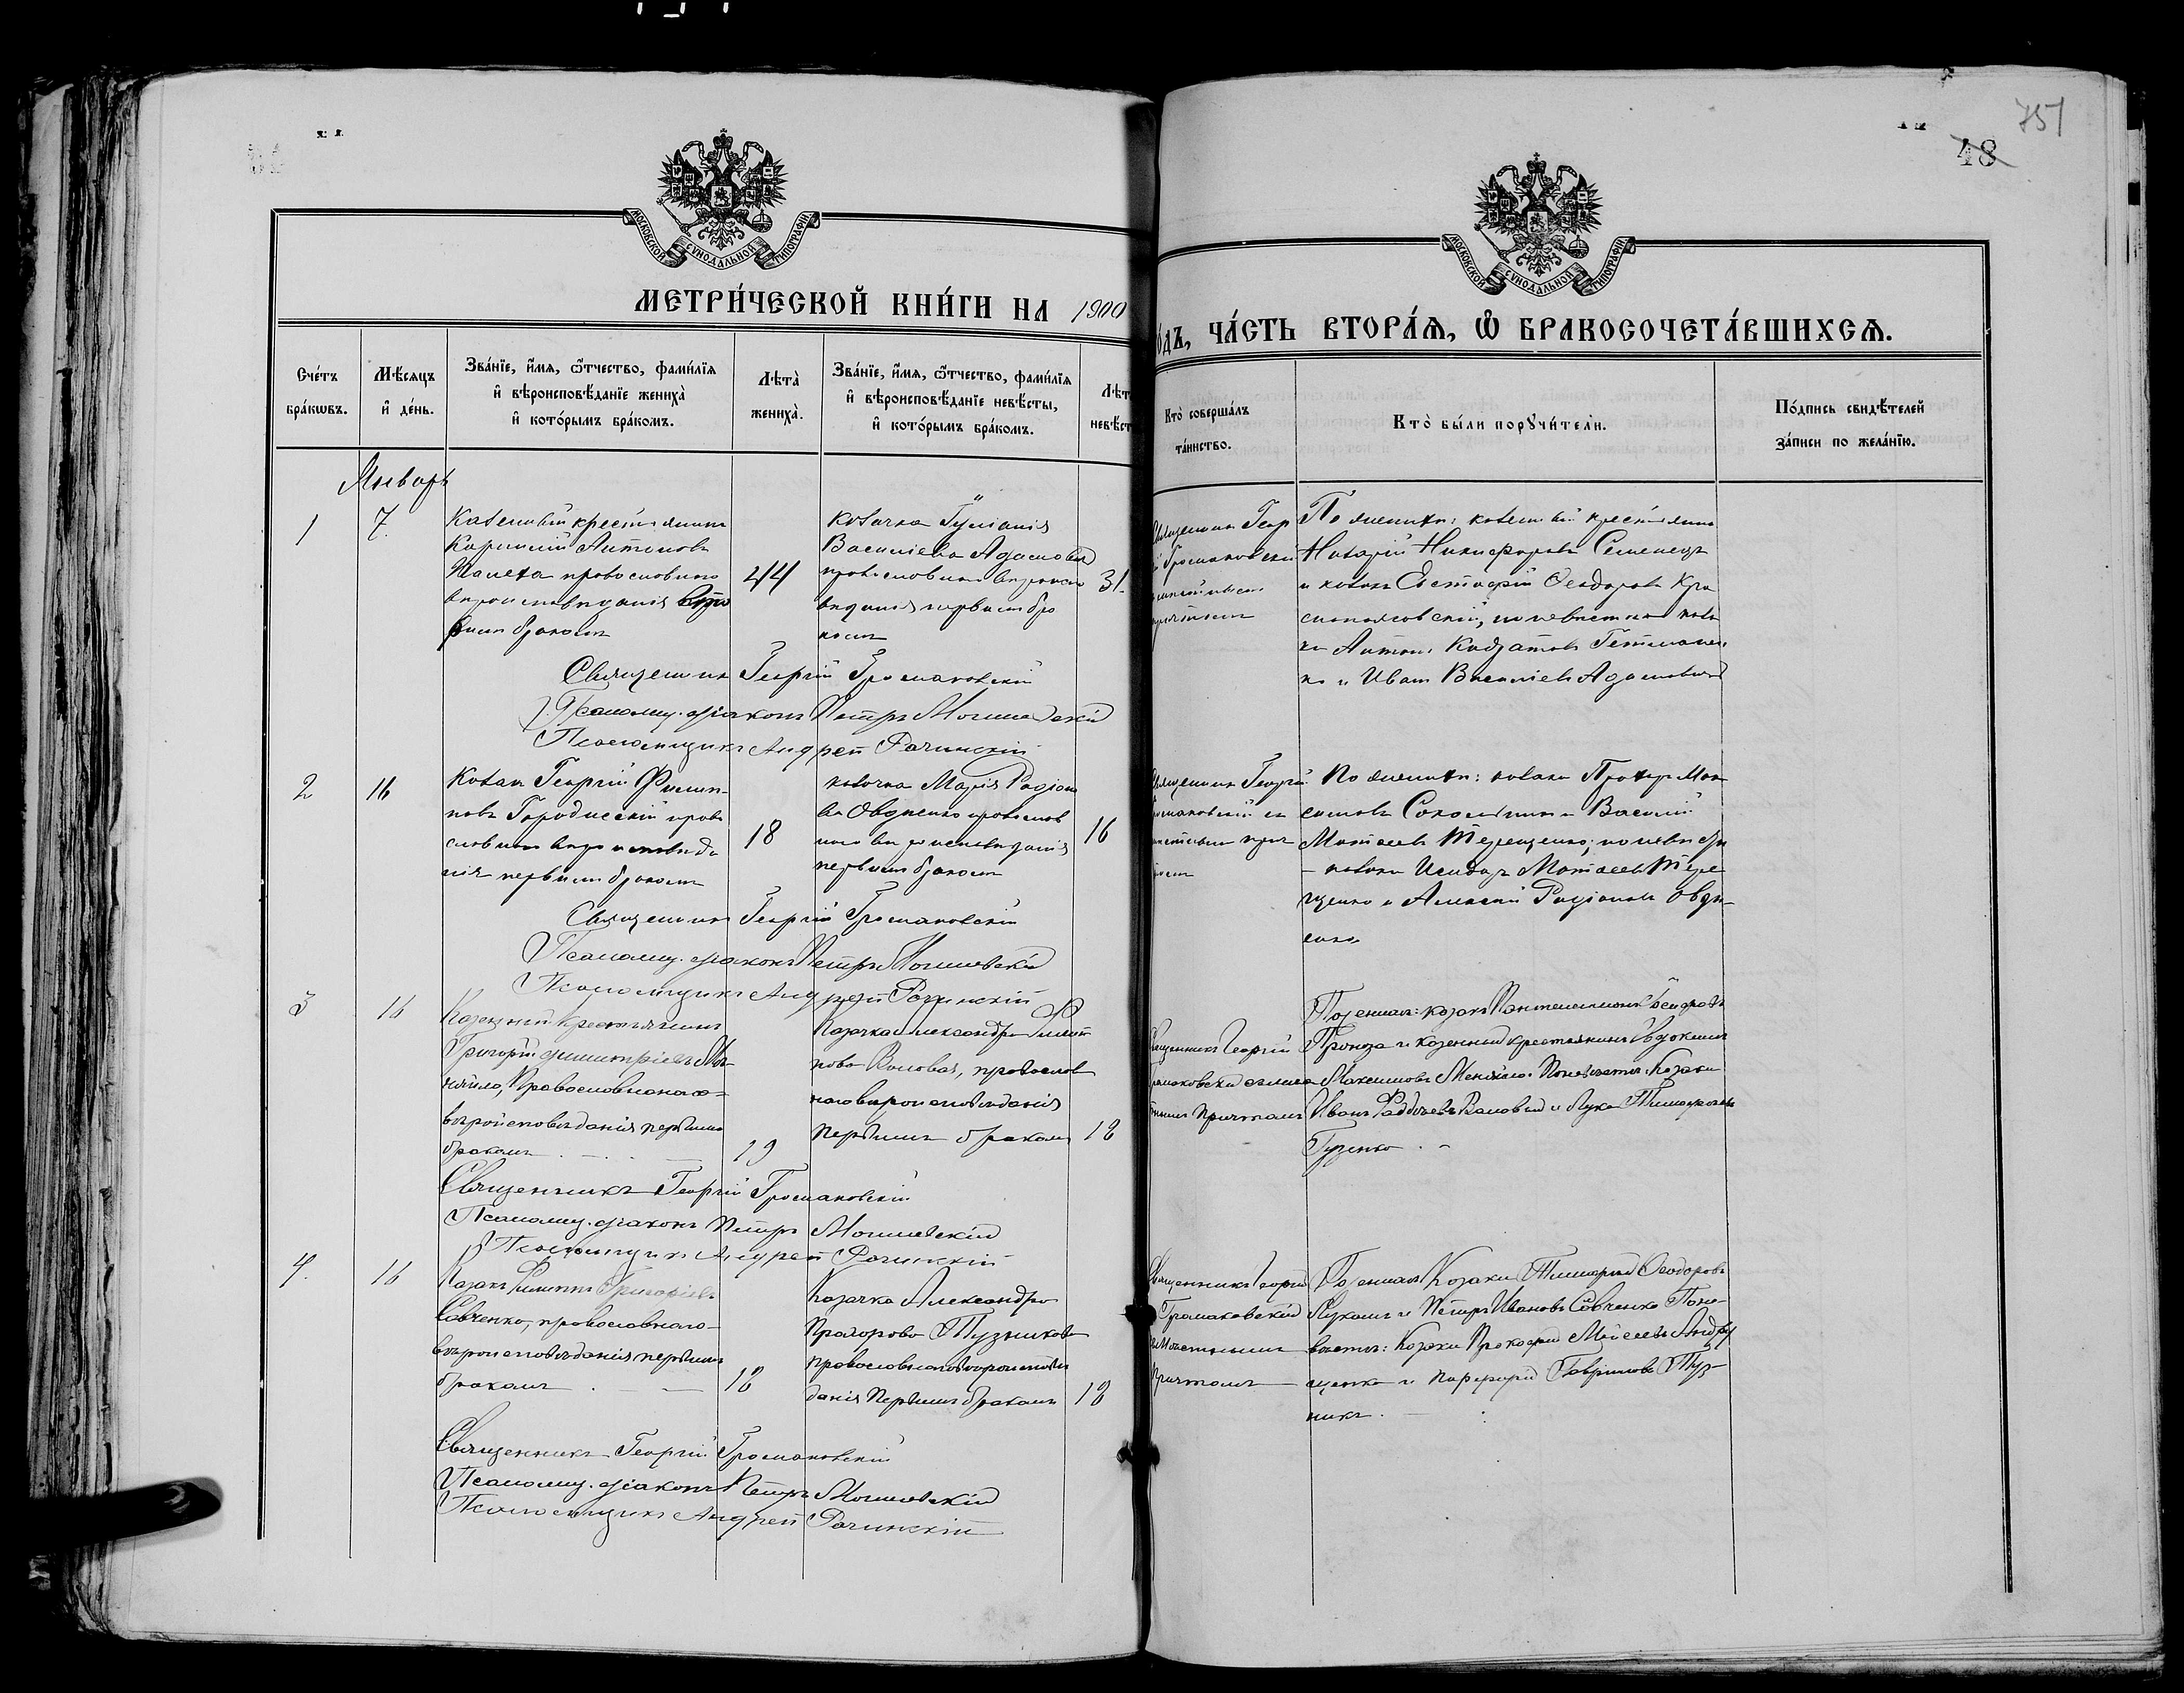 751
48
МОСКОВСКОЙ СУНОДАЛЬНОЙ ТИПОГРАФІИ
МОСКОВСКОЙ СУНОДАЛЬНОЙ ТИПОГРАФІИ
МЕТРИ́ЧЕСКОЙ КНИ́ГИ НА 1900
о́дъ, ЧА́СТЬ ВТОРА́Я, Ѡ БРАКОСОЧЕТА́ВШИХСЯ.
Сче́тъ бра́кѡвъ.
Мѣ́сяцъ и҆ де́нь.
Зва́нїе, и҆́мя, ѻ҆́тчество, фами́лїя
и҆ вѣроисповѣ́данїе жениха̀
и҆ кото́рымъ бра́комъ.
Лѣта̀ жениха̀.
Зва́нїе, и҆́мя, ѻ҆́тчество, фами́лїя
и҆ вѣроисповѣ́данїе невѣ́сты,
и҆ кото́рымъ бра́комъ.
Лѣта̀ невѣ́ст
Кто̀ соверша́лъ та́инство.
Кто̀ бы́ли порꙋчи́тели.
По́дпись свидѣ́телей
за́писи по жела́нїю.
Январь
1
7.
Казенный крестьянинъ
Корнилій Антоновъ
православнаго
вероисповеданія вто
рымъ бракомъ
44
козачка Іуліанія
Василіева Адамовая
православнаго вероиспо
веданія первымъ бра
комъ
31.
Священникъ Геор
й Громаковскій
причтомъ
По женихе: казенный крестьянинъ
Никифоровъ Семенецъ
и козакъ Евстафій Ѳеодоровъ Кра
снопаховскій, по невесте коза
ки Антоній Гетманен
ко и Иванъ Василіевъ Адамовичъ
Священникъ Георгій Громаковскій
Псаломщ. діаконъ Петръ
Псаломщикъ Андрей Рачинскій
2
16
Козакъ Георгій Филип
повъ Городнескій право
славнаго вероисповеда
нія первымъ бракомъ
18
козачка Марія Родіоно
ва Овдіенко православ
наго вероисповеданія
первымъ бракомъ
16
Священникъ Георгій
ромаковскій съ
местнымъ прич
томъ
По женихе: козаки Прохоръ Мак
симовъ и Василій
Матѳеевъ Терещенко; по невесте
– козаки Исидоръ Матѳеевъ Тере
щенко и Алексій Родіоновъ Овді
енко
Священникъ Георгій Громаковскій
Псаломщ. діаконъ Петръ
Псаломщикъ Андрей Рачинскій
3
16
Казенный крестьянинъ
Григорій Димитріевъ Ме
няйло, Православнаго
вероисповеданія первымъ
бракомъ
19
Козачка Александра Филип
пова Воловая, православ
наго вероисповеданія
первымъ бракомъ
18
Священникъ Георгій
ромаковскій съ мес
тнымъ Причтомъ
По женихе: козакъ Пантелеимонъ
Проноза и казенный крестьянинъ Евдокимъ
Максимовъ Меняйло. По невесте: Козаки
Иванъ Фаддеевъ Воловый и Лука Тимофеевъ
Гузенко
Священникъ Георгій Громаковскій
Псаломщ. діаконъ Петръ
Псаломщикъ Андрей Рачинскій
4.
16
Козакъ Филиппъ Григоріевъ
Савченко, православнаго
вероисповеданія первымъ
бракомъ
18
Козачка Александра
Прохорова Пузикова
православнаго вероиспове
данія первымъ бракомъ
18
Священникъ Георгій
Громаковскій
съ местнымъ
Причтомъ
По женихе Козаки Тимофей Ѳеодоровъ
и Петръ Ивановъ Савченко По не
весте: Козаки Прокофій Моисеевъ Андру
щенко и Порфирій Гавриловъ Пуз
никъ.
Священникъ Георгій Громаковскій
Псаломщ. діаконъ Петръ
Псаломщикъ Андрей Рачинскій